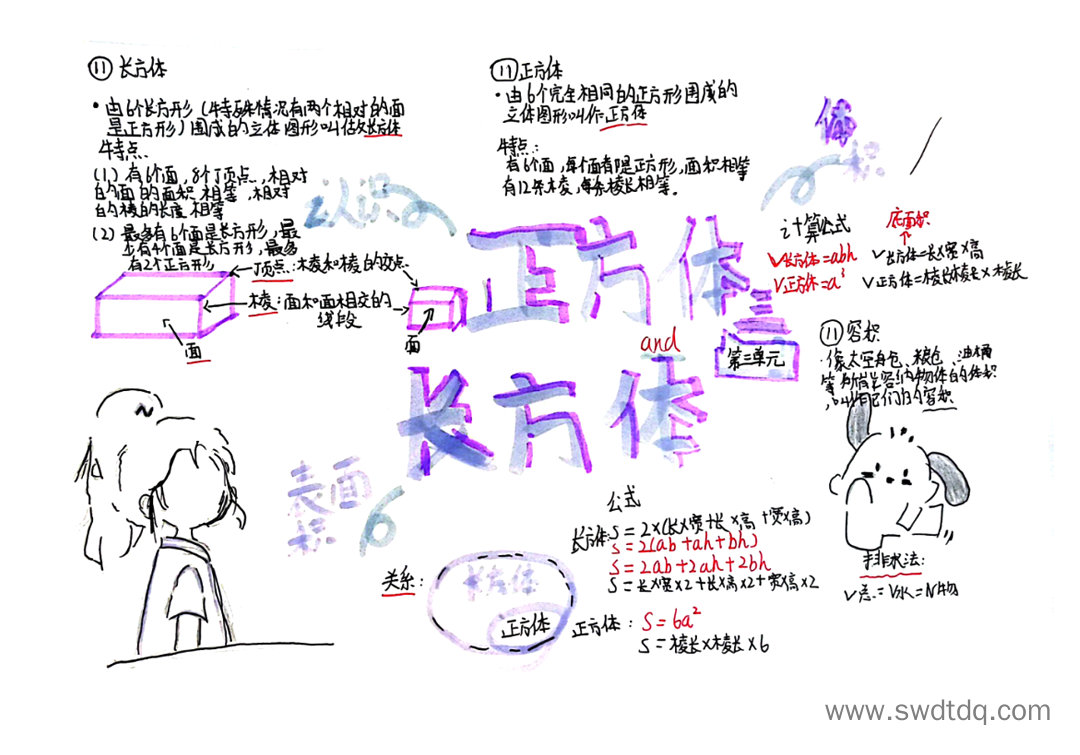 ⑪ 长方体
·由6个长方形(特殊情况有两个相对的面
是正方形)围成的立体图形叫做长方体
特点.
(1)有6个面,8个顶点,相对
的面的面积相等,相对
的棱的长度相等
(2)最多有6个面是长方形,最
少有4个面是长方形,最多
有2个正方形
顶点:棱和棱的交点
棱:面和面相交的
线段
面
面
认识
⑪正方体
·由6个完全相同的正方形围成的
立体图形叫作正方体
特点:
有6个面,每个面都是正方形,面积相等
有12条棱,每条棱长相等。
正方体
and
长方体
三
第三单元
体
积
计算公式
底面积
V长方体=abh
V长方体=长×宽×高
V正方体=a³
V正方体=棱长×棱长×棱长
⑪容积
·像太空舱、粮仓、油桶
等所能容纳物体的体积
,叫作它们的容积
排水法:
V总-V水=V物
表面
积
关系:
长方体
正方体
公式
长方体:S=2×(长×宽+长×高+宽×高)
S=2(ab+ah+bh)
S=2ab+2ah+2bh
S=长×宽×2+长×高×2+宽×高×2
正方体:S=6a²
S=棱长×棱长×6
www.swdtdq.com